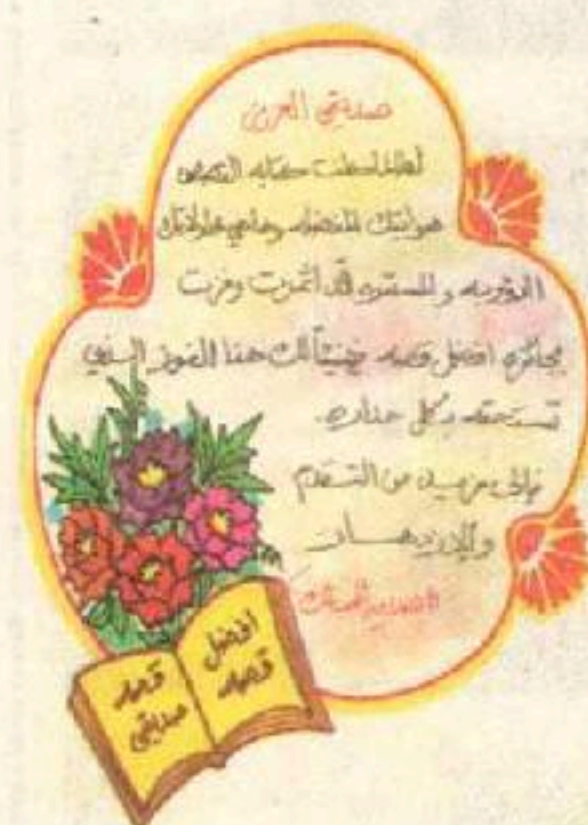 صديقي العزيز
لطالما كانت كتابه القصص
هوايتك المفضله وهاهي محاولاتك
الدؤوبه والمستمره قد أثمرت وفزت
بجائزه افضل قصه فهنيئاً لك هذا الفوز الذي
تستحقه بكل جداره.
فإلى مزيد من التقدم
والازدهار
افضل
قصه
قصه
صديقي